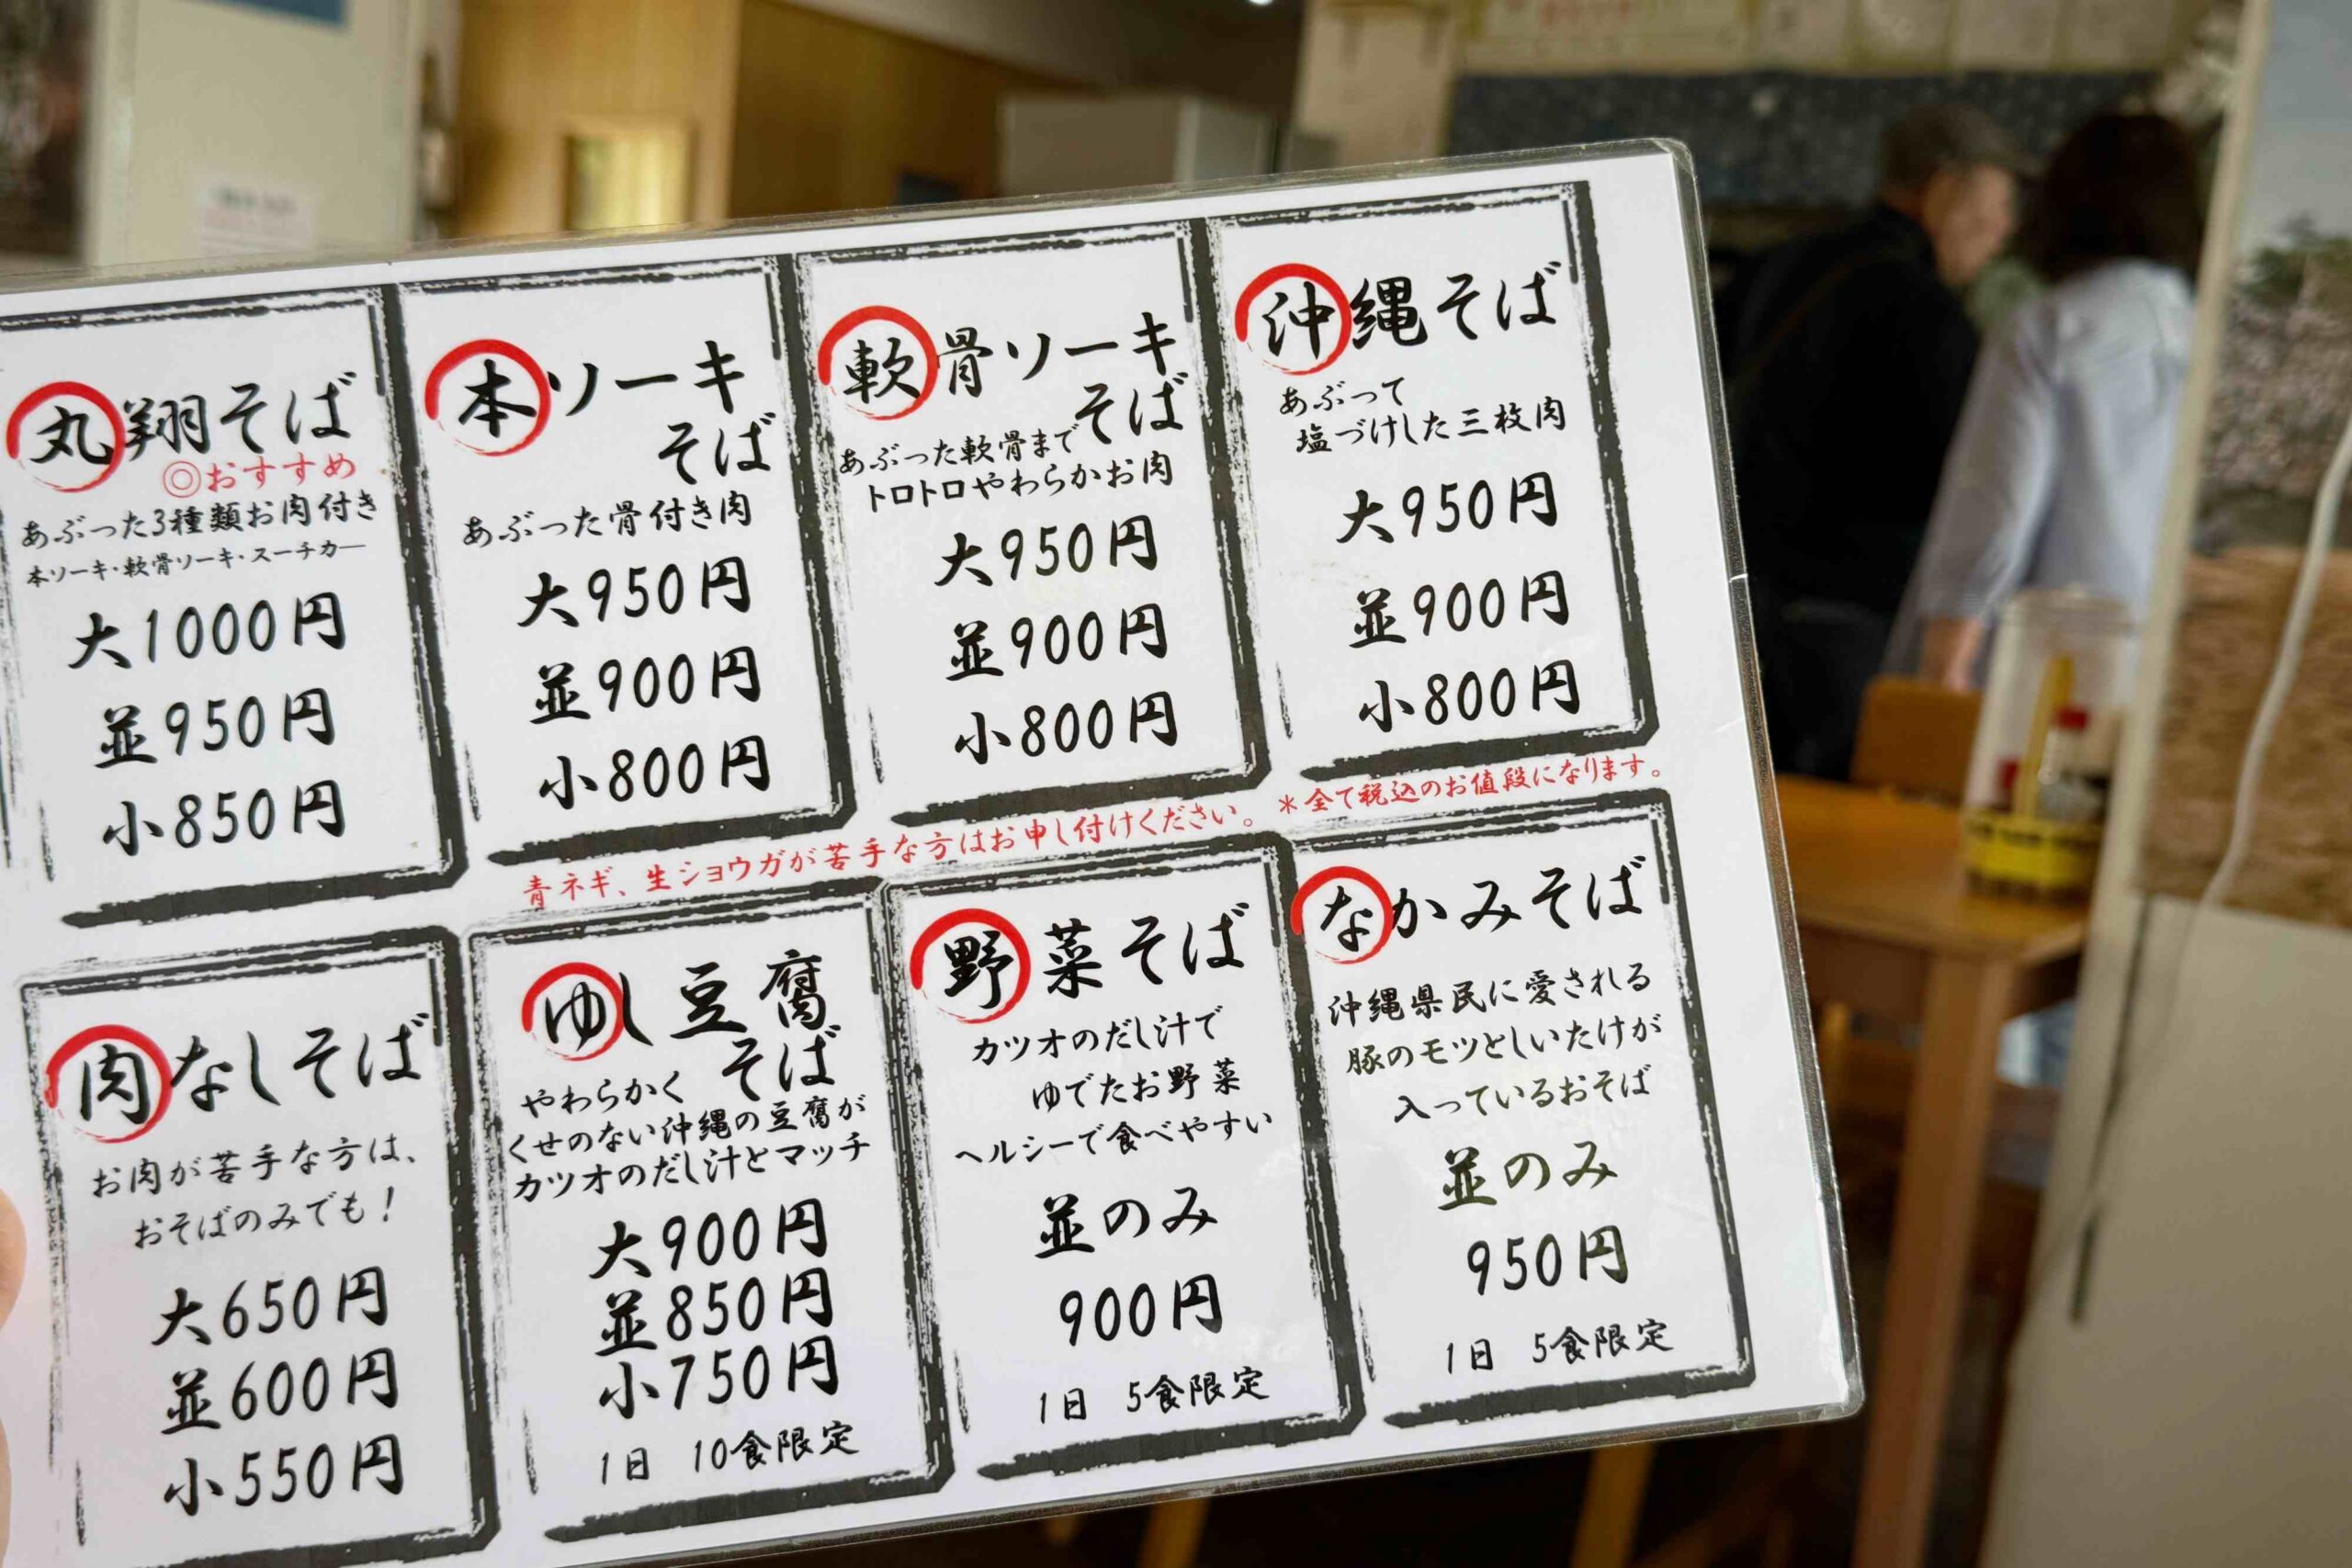 丸翔そば
◎おすすめ
あぶった3種類お肉付き
本ソーキ・軟骨ソーキ・スーチカー
大1000円
並950円
小850円
本ソーキ
そば
あぶった骨付き肉
大950円
並900円
小800円
軟骨ソーキ
そば
あぶった軟骨まで
トロトロやわらかお肉
大950円
並900円
小800円
沖縄そば
あぶって
塩づけした三枚肉
大950円
並900円
小800円
青ネギ、生ショウガが苦手な方はお申し付けください。 *全て税込のお値段になります。
肉なしそば
お肉が苦手な方は、
おそばのみでも!
大650円
並600円
小550円
ゆし豆腐
そば
やわらかく
くせのない沖縄の豆腐が
カツオのだし汁とマッチ
大900円
並850円
小750円
1日 10食限定
野菜そば
カツオのだし汁で
ゆでたお野菜
ヘルシーで食べやすい
並のみ
900円
1日 5食限定
なかみそば
沖縄県民に愛される
豚のモツとしいたけが
入っているおそば
並のみ
950円
1日 5食限定